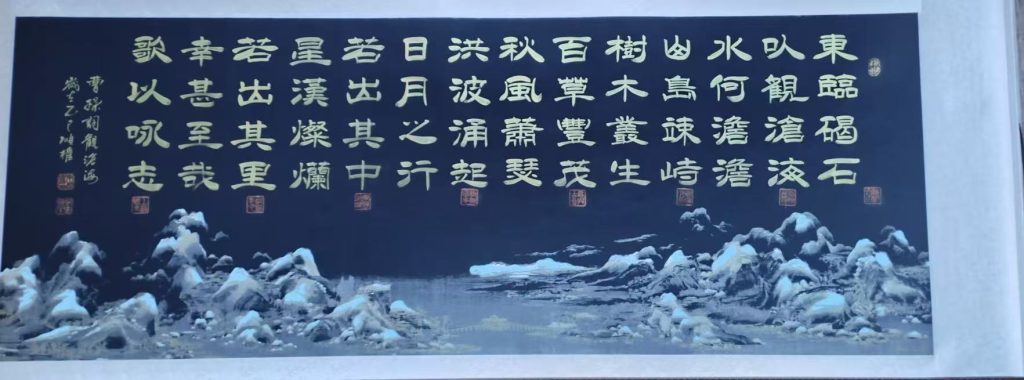 東臨碣石
以觀滄海
水何澹澹
山島竦峙
樹木叢生
百草豐茂
秋風蕭瑟
洪波涌起
日月之行
若出其中
星漢燦爛
若出其里
幸甚至哉
歌以咏志
曹操詞觀滄海